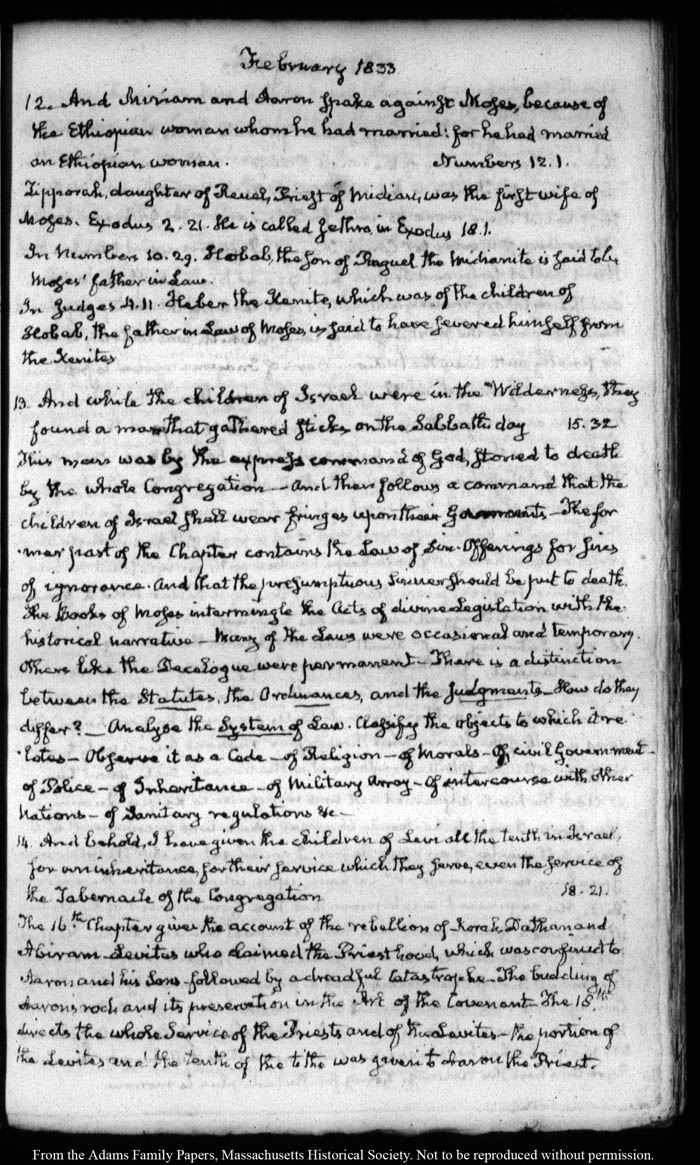 February 1833
12. And Miriam and Aaron spake against Moses, because of
the Ethiopian woman whom he had married: for he had married
an Ethiopian woman. Numbers 12.1.
Zipporah, daughter of Reuel, Priest of Midian, was the first wife of
Moses. Exodus 2.21. He is called Jethro, in Exodus 18.1.
In Numbers 10.29. Hobab, the son of Raguel the Midianite is said to be
Moses' father in Law.
In Judges 4.11. Heber the Kenite, which was of the children of
Hobab, the father in Law of Moses, is said to have severed himself from
the Kenites
13. And while the children of Israel were in the Wilderness, they
found a man that gathered sticks on the Sabbath day 15.32
This man was by the express command of God, stoned to death
by the whole Congregation — And then follows a command that the
children of Israel shall wear fringes upon their Garments — The for
mer part of the Chapter contains the Law of Sin-Offerings for sins
of ignorance. And that the presumptuous sinner should be put to death.
The Books of Moses intermingle the Acts of divine Legislation with the
historical narrative — Many of the Laws were occasional and temporary.
Others like the Decalogue were permanent — There is a distinction
between the Statutes, the Ordinances, and the Judgments — How do they
differ? — Analyse the System of Law. Classify the objects to which it re
lates — Observe it as a Code — of Religion — of Morals — of civil Government —
of Police — of Inheritance — of Military Array — of intercourse with other
Nations — of Sanitary regulations &c —
14. And behold, I have given the children of Levi all the tenth in Israel,
for an inheritance, for their service which they serve, even the service of
the Tabernacle of the Congregation 18.21.
The 16th Chapter gives the account of the rebellion of Korah, Dathan and
Abiram Levites who claimed the Priesthood, which was confined to
Aaron and his Sons — followed by a dreadful catastrophe — The budding of
Aarons rod and its preservation in the Ark of the Covenant — The 18th
directs the whole Service of the Priests and of the Levites — the portion of
the Levites and the tenth of the tithe was given to Aaron the Priest.
From the Adams Family Papers, Massachusetts Historical Society. Not to be reproduced without permission.